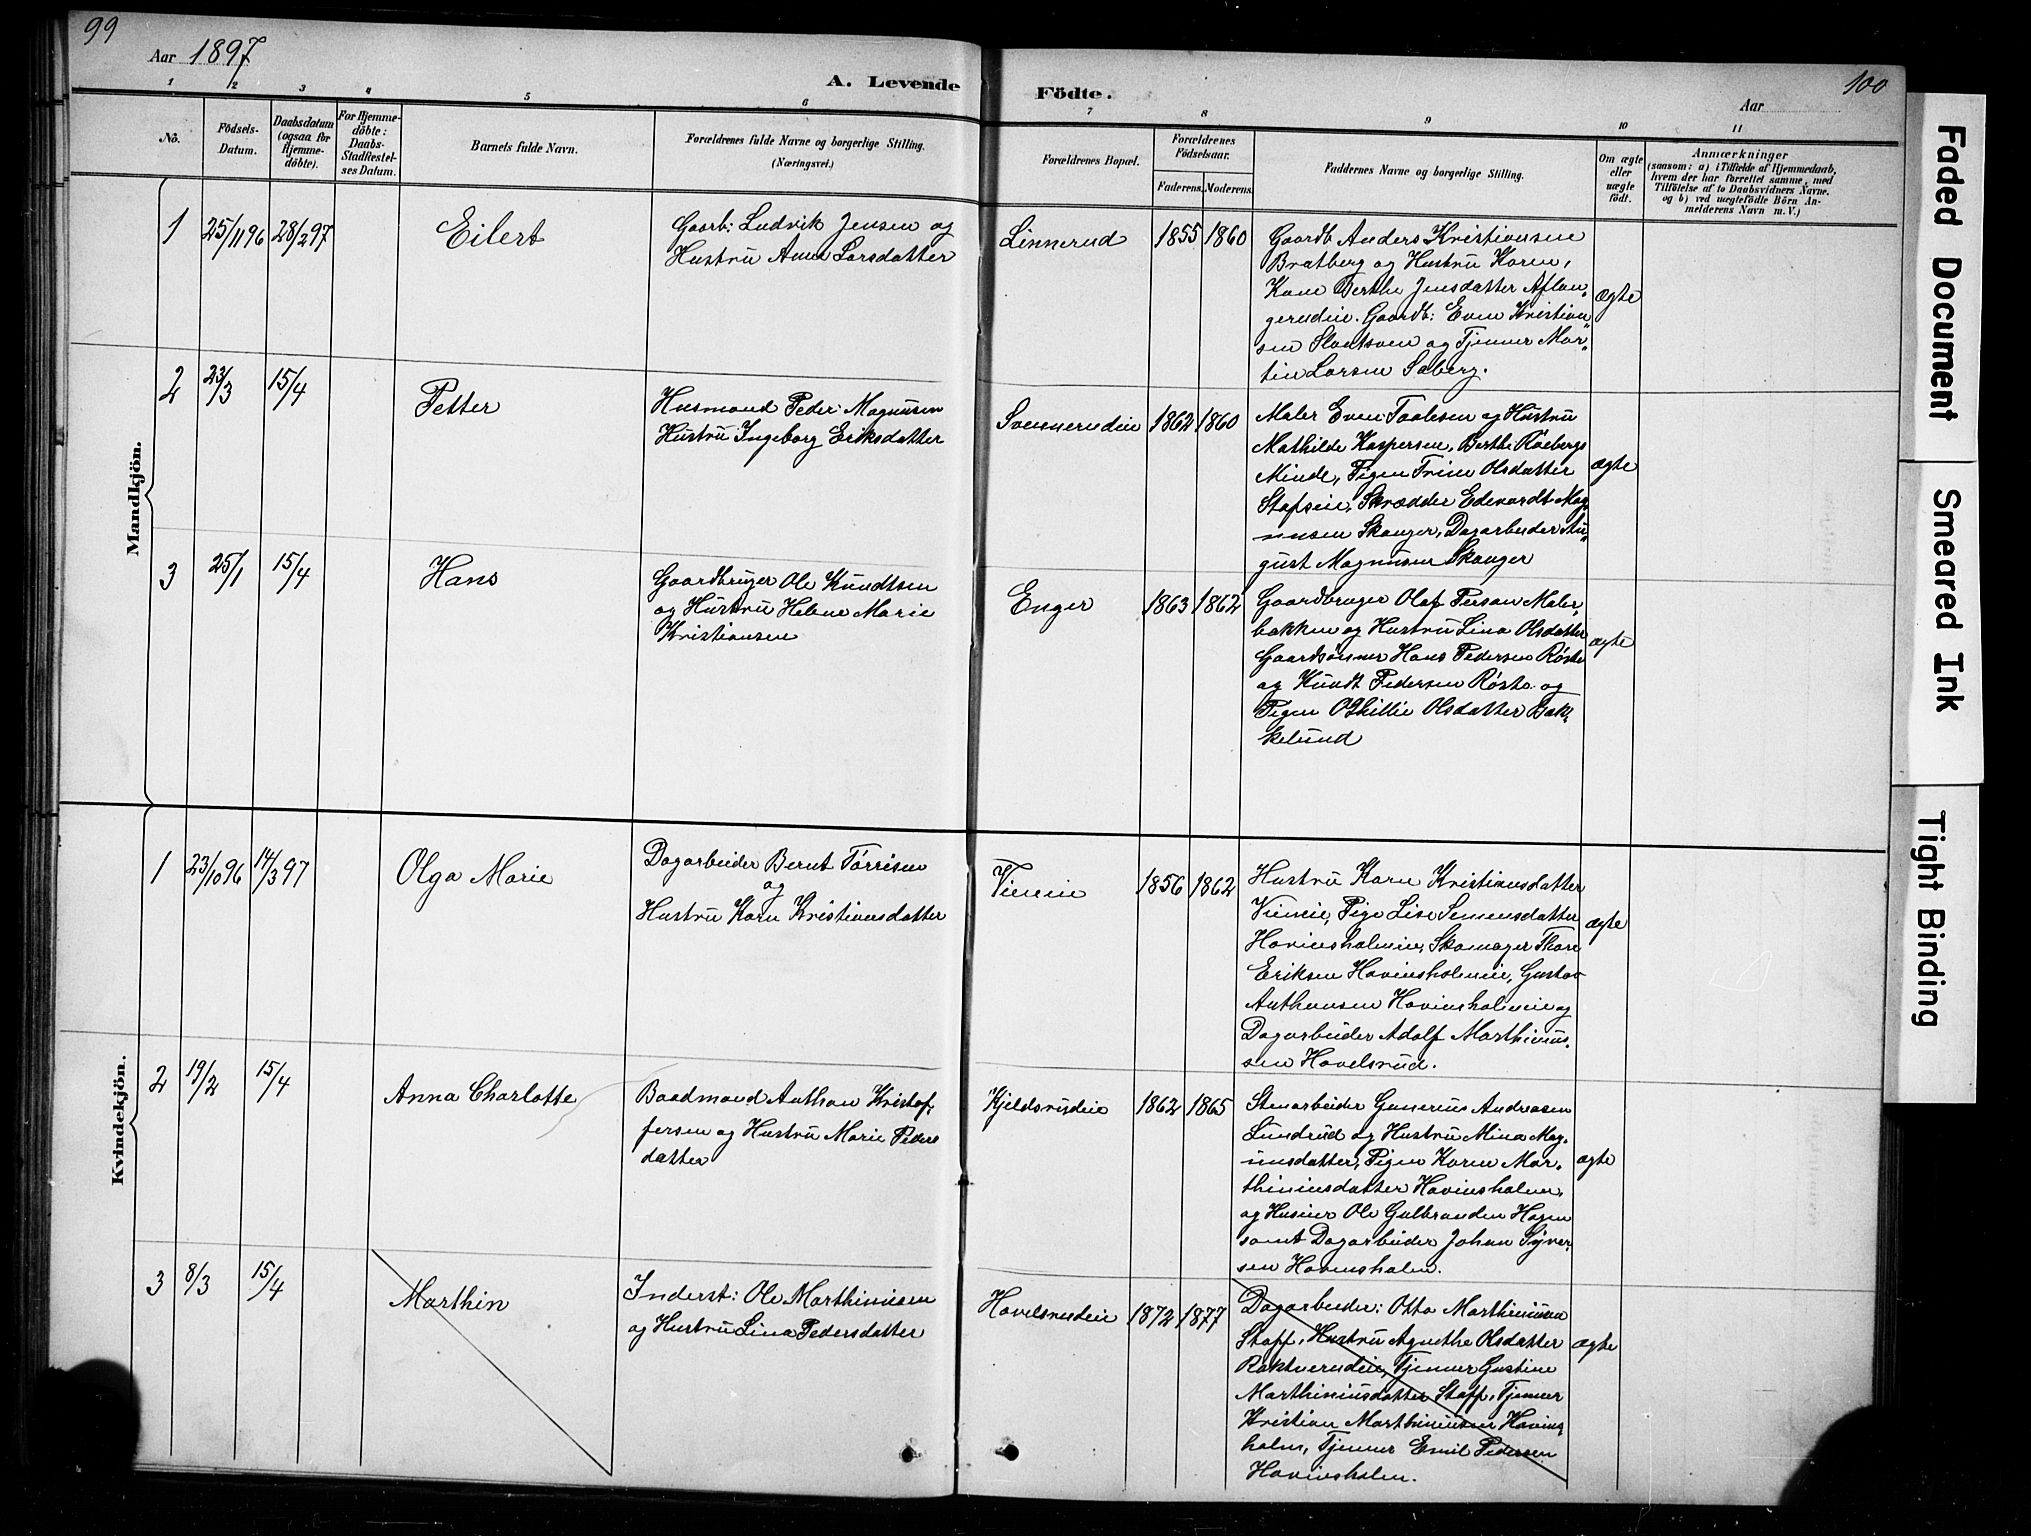 99
Aar 1897
A. Levende
Födte.
Aar
100
1
2
3
4
5
6
7
8
9
10
11
No.
Födsels-
Datum.
Daabsdatum
(ogsaa for
Hjemme-
döbte).
For Hjemme-
döbte:
Daabs-
Stadfæstel-
ses Datum.
Barnets fulde Navn.
Forældrenes fulde Navne og borgerlige Stilling.
(Næringsvei.)
Forældrenes Bopæl.
Forældrenes
Födselsaar.
Faderens.
Moderens.
Faddernes Navne og borgerlige Stilling.
Om ægte
eller
uægte
födt.
Anmærkninger
(saasom: a) i Tilfælde af Hjemmedaab,
hvem der har forrettet samme, med
Tilföielse af to Daabsvidners Navne.
og b) ved uægtefödte Börn An-
melderens Navn m. V.)
Mandkjön.
1
25/11 96
28/2 97
Eilert
Gaarb: Ludvik Jensen og
Hustru Anne Larsdatter
Linnerud
1855
1860
Gaardb Anders Kristiansen
Bratberg og Hustru Karen,
Kone Berthe Jensdatter Aflan-
gerudeie. Gaardb: Even Kristian-
sen Slaatsveen og Tjener Mar-
tin Larsen Saberg.
ægte
2
23/3
15/4
Petter
Husmand Peder Magnusen
Hustru Ingeborg Eriksdatter
Svennerudeie
1862
1860
Maler Even Taalesen og Hustru
Mathilde Kaspersen, Berthe Röebergs
Minde, Pigen Trine Olsdatter
Stafseie, Skrædder Edevardt Mag-
nusen Skanger, Dagarbeider Au-
gust Magnusen Skanger
ægte
3
25/1
15/4
Hans
Gaardbruger Ole Knudtsen
og Hustru Helene Marie
Kristiansen
Enger
1863
1862
Gaardbruger Olaf Persan Maler-
bakken og Hustru Lina Olsdatter
Gaardsønner Hans Pedersen Røste
og Knudt Pedersen Røste og
Pigen Othillie Olsdatter Bak-
kelund
ægte
Kvindekjön.
1
23/10 96
14/3 97
Olga Marie
Dagarbeider Bernt Tørrisen
og
Hustru Karn Kristiansdatter
Viemeie
1856
1862
Hustru Karn Kristiansdatter
Viemeie, Pige Lise Semensdatter
Hovinsholmeie, Skomager Thore
Eriksen Hovinsholmeie, Gustav
Anthonsen Hovinsholmeie og
Dagarbeider Adolf Marthinius-
sen Hovelsrud.
ægte
2
19/2
15/4
Anna Charlotte
Baadmand Anthon Kristof-
fersen og Hustru Marie Peders
datter
Kjeldsrudeie
1862
1865
Stenarbeider Gunerius Andreasen
Lundrud og Hustru Mina Mag-
nusdatter, Pigen Karen Mar-
thiniusdatter Hovinsholm,
og Huseier Ole Gulbranden Hagen
samt Dagarbeider Johan Syver-
sen Hovinsholm.
ægte
3
8/3
15/4
Marthin
Inderst: Ole Marthiniusen
og Hustru Lina Pedersdatter
Hovelsrudeie
1872
1877
Dagarbeider: Otto Marthiniusen
Staff, Hustru Agnethe Olsdatter
Raknerudeie, Tjener Gustine
Marthiniusdatter Staff, Tjener
Kristian Marthiniusen Hovins-
holm, Tjener Emil Pedersen
Hovinsholm.
ægte
Faded Document
Smeared Ink
Tight Binding